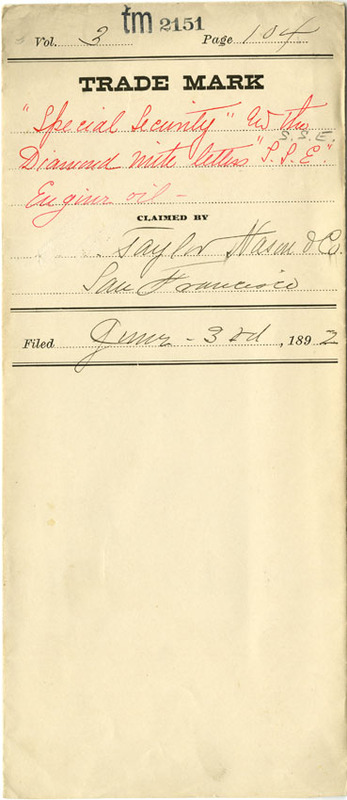 tm 2151
Vol. 3 Page 104
TRADE MARK
"Special Security" W the
S.S.E.
Diamond with letters "S.S.E."
Engine oil -
CLAIMED BY
Taylor Nason & Co.
San Francisco
Filed June - 3rd, 1892